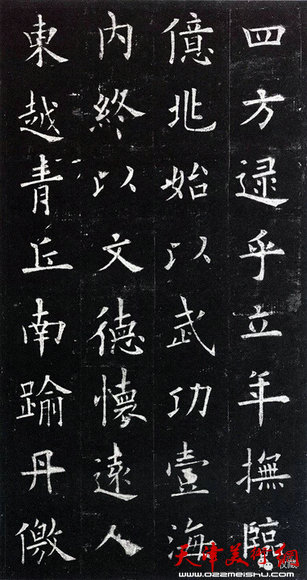 四方逯乎立年撫臨
億兆始以武功壹海
內終以文德懷遠人
東越青丘南踰丹儌
天津美術網
www.022meishu.com